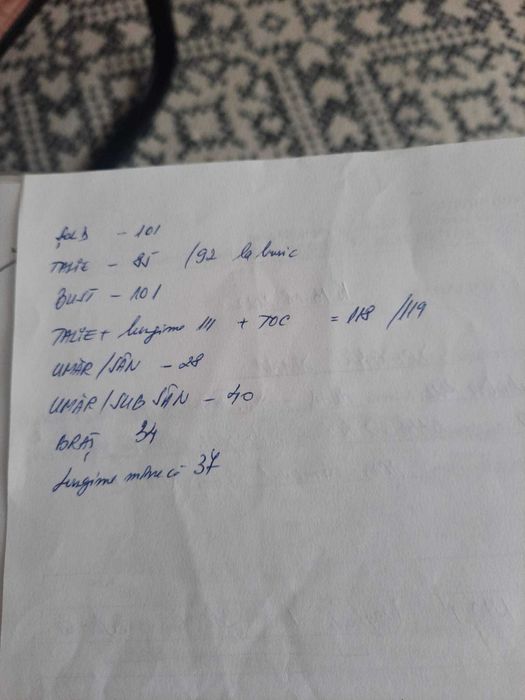 ȘOLD - 101
TALIE - 85 /92 la buric
BUST - 101
TALIE + lungime 111 + TOC = 118 /119
UMĂR/SÂN - 28
UMĂR/SUB SÂN - 40
BRAȚ 34
lungime mâneci 37